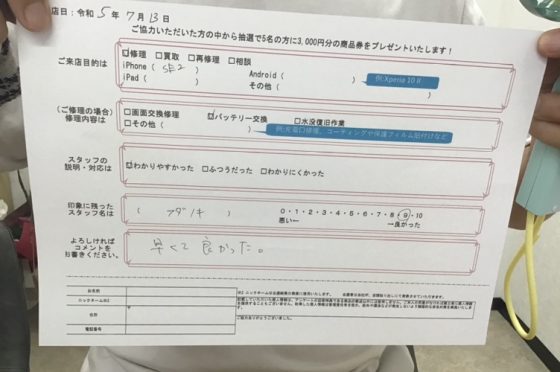 店日：令和 5 年 7 月 13 日
ご協力いただいた方の中から抽選で5名の方に3,000円分の商品券をプレゼントいたします！
ご来店目的は
☑修理 □買取 □再修理 □相談
iPhone（ SE2 ） Android（ ） 例:Xperia 10 II
iPad（ ） その他（ ）
（ご修理の場合）
修理内容は
□画面交換修理 ☑バッテリー交換 □水没復旧作業
□その他（ ） 例:充電口修理、コーティングや保護フィルム貼付けなど
スタッフの
説明・対応は
☑わかりやすかった □ふつうだった □わかりにくかった
印象に残った
スタッフ名は
（ フダノキ ） 0・1・2・3・4・5・6・7・8・9・10
悪い― ―良かった
よろしければ
コメントを
お書きください。
早くて良かった。
お名前
ニックネーム※1
住所 〒
電話番号
ご協力ありがとうございました。